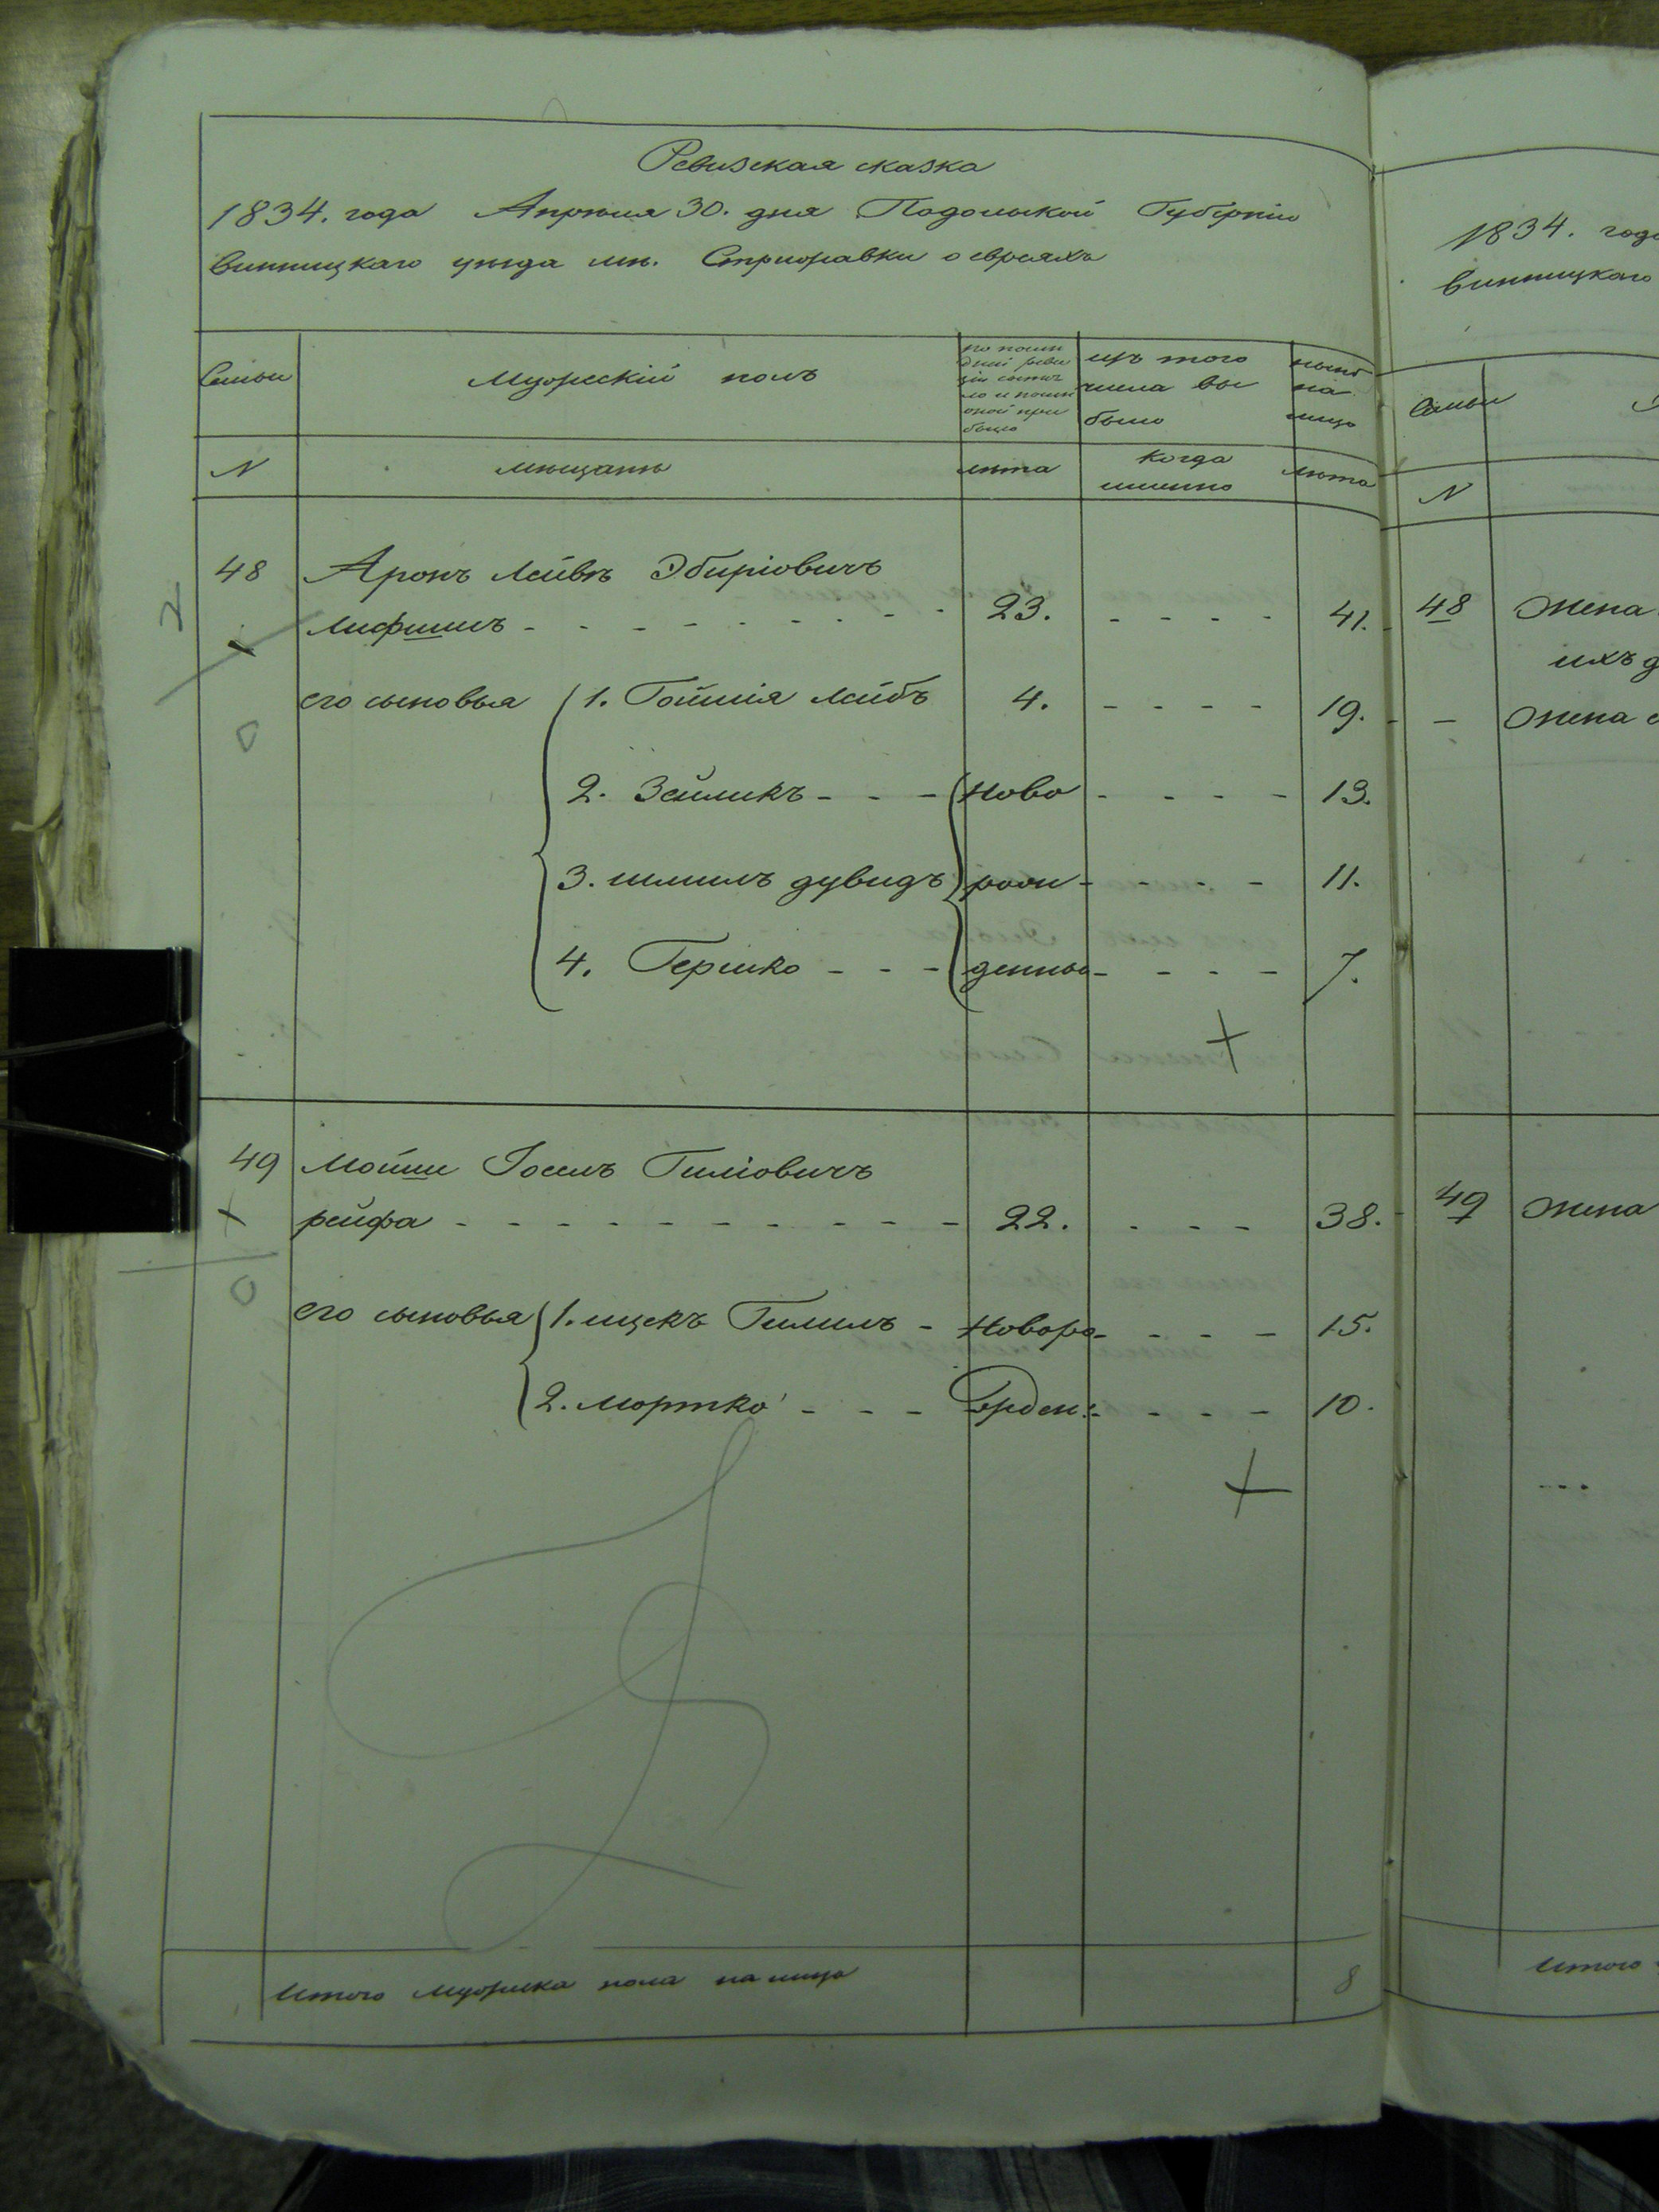 Ревизская сказка
1834. года Апреля 30. дня Подольской Губернiи
винницкаго уезда мн. Стрижавки о евреяхъ
Семьи
Мужескiй полъ
по послѣ
дней реви
зiи состоя
ло и после
оной при
было
изъ того
числа вы
было
нынѣ
на
лицо
N
мѣщанъ
лѣта
когда
именно
лѣта
48 Аронъ Лейбъ Эбирiовичъ
Лифшицъ - - - - - - - - 23. - - - - 41.
его сыновья 1. Гойшiя Лейбъ 4. - - - - 19.
2. Зейликъ - - - ново - - - - 13.
3. шмиль дувидъ рож - - - - 11.
4. Гершко - - - денные - - - - 7.
49 Мошии Iосель Гилiовичъ
рейфа - - - - - - - - - - - 22. - - - 38.
его сыновья 1. ицекъ Гилиль - новоро - - - - 15.
2. мортко - - - жден: - - - - 10.
Итого мужеска пола на лицо 8
1834. года
винницкаго
Семьи
N
48 Жена
ихъ д
- Жена с
49 Жена
Итого